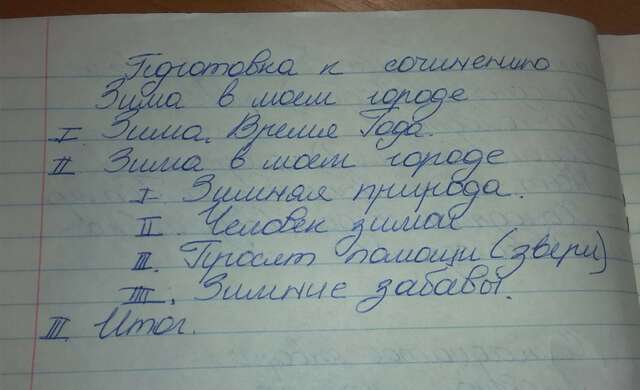 Підготовка к сочинению
Зима в моем городе
I. Зима. Время Года.
II Зима в моем городе
I. Зимная природа.
II. Человек зимой
III. Просят помощи (звери)
IIII. Зимние забавы.
III. Итог.